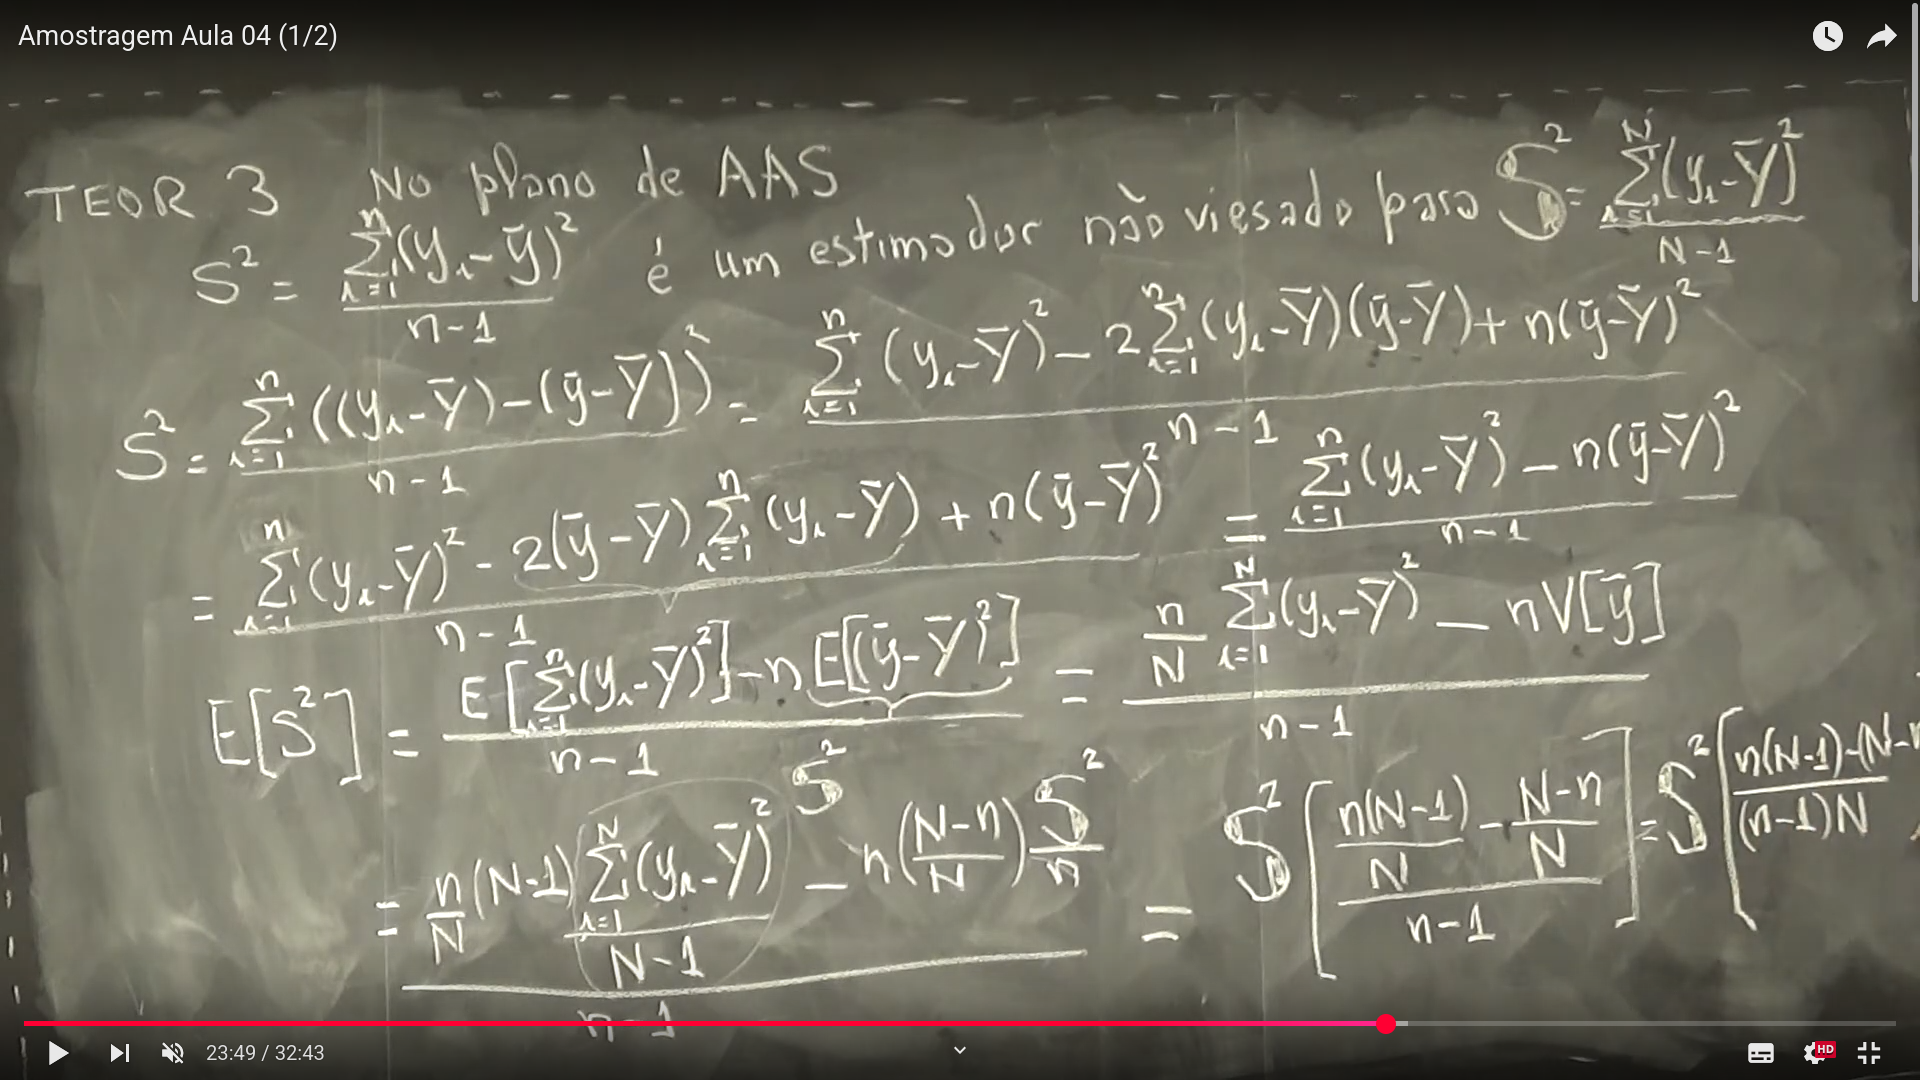 Amostragem Aula 04 (1/2)
TEOR 3 No plano de AAS
s² = Σ_{i=1}^{n}(y_i - ȳ)² / (n-1) é um estimador não viesado para S² = Σ_{i=1}^{N}(y_i - Ȳ)² / (N-1)
s² = Σ_{i=1}^{n}((y_i - Ȳ) - (ȳ - Ȳ))² / (n-1) = [Σ_{i=1}^{n}(y_i - Ȳ)² - 2Σ_{i=1}^{n}(y_i - Ȳ)(ȳ - Ȳ) + n(ȳ - Ȳ)²] / (n-1)
= [Σ_{i=1}^{n}(y_i - Ȳ)² - 2(ȳ - Ȳ)Σ_{i=1}^{n}(y_i - Ȳ) + n(ȳ - Ȳ)²] / (n-1) = [Σ_{i=1}^{n}(y_i - Ȳ)² - n(ȳ - Ȳ)²] / (n-1)
E[s²] = [E[Σ_{i=1}^{n}(y_i - Ȳ)²] - nE[(ȳ - Ȳ)²]] / (n-1) = [n/N Σ_{i=1}^{N}(y_i - Ȳ)² - nV[ȳ]] / (n-1)
S²
= [n/N (N-1) Σ_{i=1}^{N}(y_i - Ȳ)² / (N-1) - n((N-n)/N) S²/n] / (n-1) = S² [(n(N-1)/N - (N-n)/N) / (n-1)] = S² [n(N-1)-(N-n / (n-1)N
23:49 / 32:43
HD